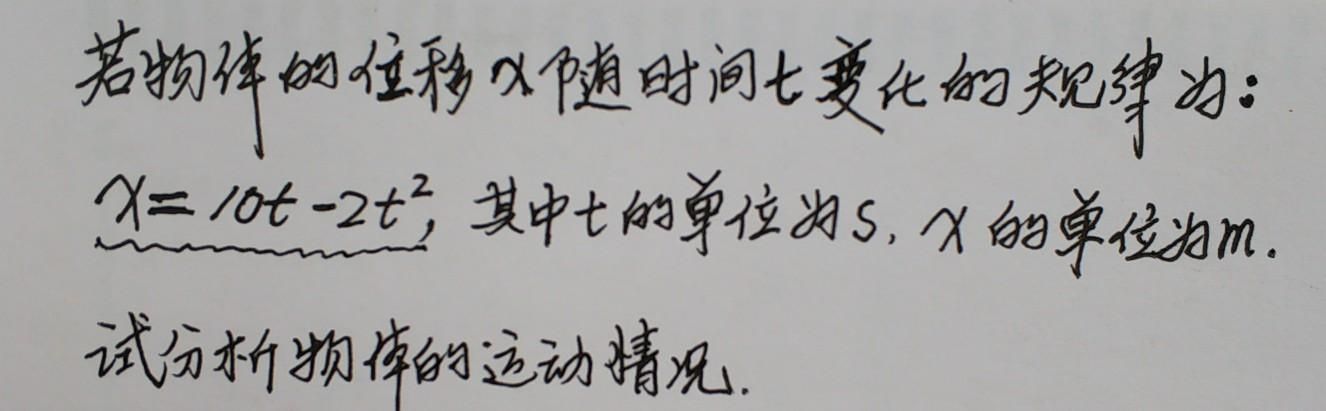 若物体的位移x随时间t变化的规律为:
x=10t-2t², 其中t的单位为s, x的单位为m.
试分析物体的运动情况.